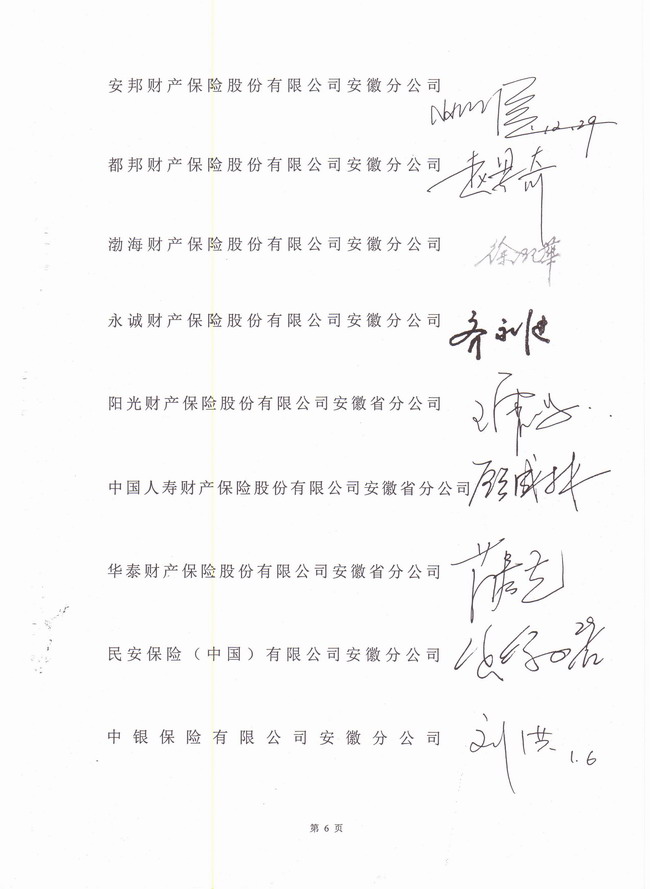 安邦财产保险股份有限公司安徽分公司
12.29
都邦财产保险股份有限公司安徽分公司
渤海财产保险股份有限公司安徽分公司
永诚财产保险股份有限公司安徽分公司
阳光财产保险股份有限公司安徽省分公司
中国人寿财产保险股份有限公司安徽省分公司
华泰财产保险股份有限公司安徽省分公司
民安保险（中国）有限公司安徽分公司
29
中银保险有限公司安徽分公司 刘洪 1.6
第 6 页